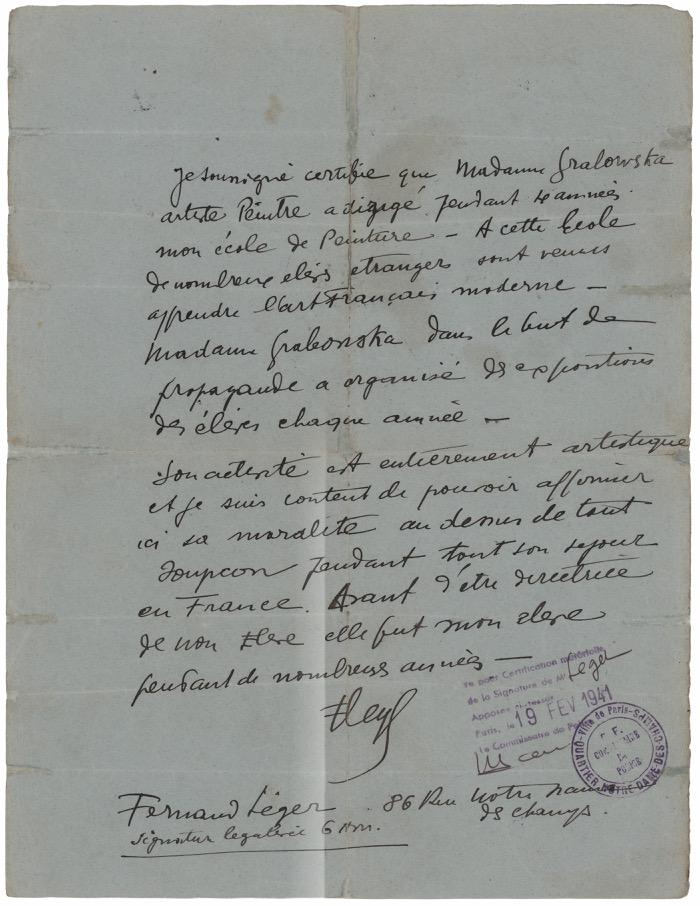 Je soussigné certifie que Madame Grabowska
artiste Peintre a dirigé pendant 4 années
mon école de Peinture – A cette Ecole
de nombreux elèves etrangers sont venus
apprendre l'art Français moderne –
Madame Grabowska dans le but de
propagande a organisé des expositions
des élèves chaque année –
Son activité est entièrement artistique
et je suis content de pouvoir affirmer
ici sa moralité au dessus de tout
soupcon pendant tout son sejour
en France. Avant d'être directrice
de mon elève elle fut mon elève
pendant de nombreuses années –
FLeger
Vu pour Certification matérielle
de la Signature de Mr Leger
Apposée ci-dessus
Paris, le 19 FEV 1941
Le Commissaire de Police
VILLE DE PARIS
E. F.
COMMISSAIRE
DE
POLICE
QUARTIER NOTRE-DAME-DES-CHAMPS
Fernand Léger . 86 Rue Notre Dame
des champs.
signature legalisée